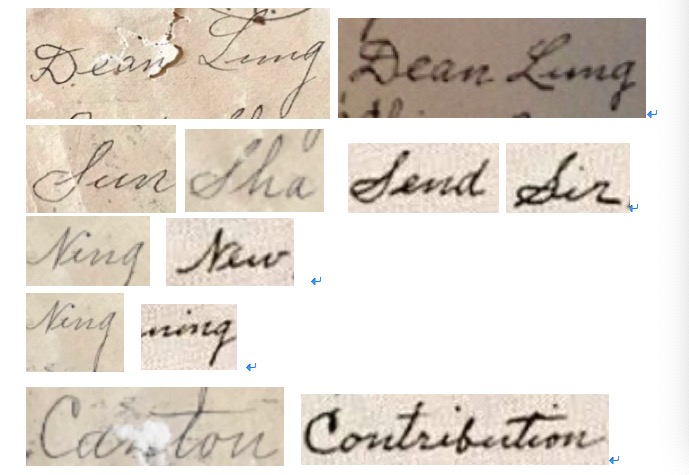 Dean Lung Dean Lung
Sun Sha Send Sir
Ning New
Ning ning
Canton Contribution